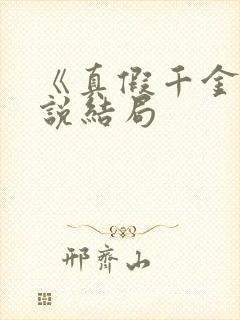 《真假千金
說結局
邢齊山